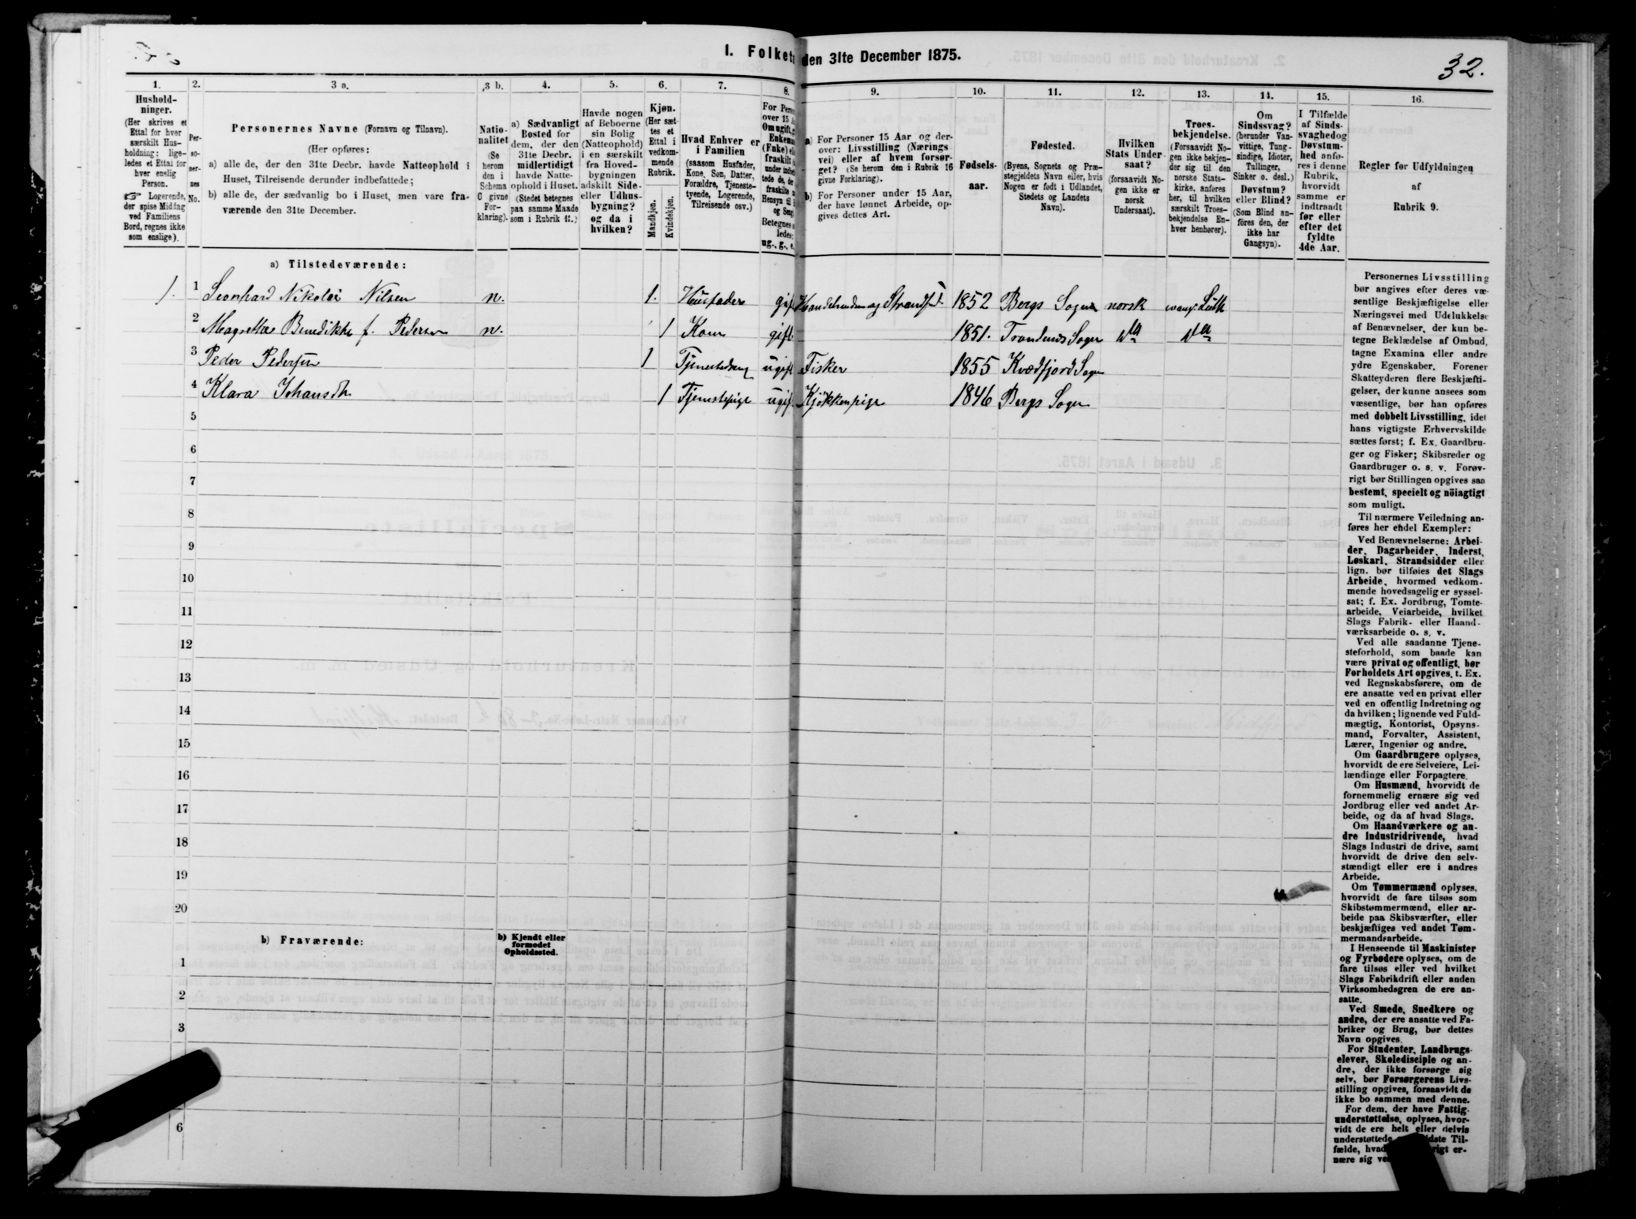 I. Folket
den 31te December 1875.
32.
1.
Hushold-
ninger.
(Her skrives et
Ettal for hver
særskilt Hus-
holdning; lige-
ledes et Ettal for
hver enslig
Person.
Logerende,
der spise Middag
ved Familiens
Bord, regnes ikke
som enslige).
2.
Per-
so-
ner-
nes
No.
3 a.
Personernes Navne (Fornavn og Tilnavn).
(Her opføres:
a) alle de, der den 31te Decbr. havde Natteophold i
Huset, Tilreisende derunder indbefattede;
b) alle de, der sædvanlig bo i Huset, men vare fra-
værende den 31te December.
3 b.
Natio-
nalitet
(Se
herom
den i
Schema
C givne
For-
klaring).
4.
a) Sædvanligt
Bosted for
dem, der den
31te Decbr.
midlertidigt
havde Natte-
ophold i Huset.
(Stedet betegnes
paa samme Maade
som i Rubrik 11.)
5.
Havde nogen
af Beboerne
sin Bolig
(Natteophold)
i en særskilt
fra Hoved-
bygningen
adskilt Side-
eller Udhus-
bygning?
og da i
hvilken?
6.
Kjøn.
(Her sæt-
tes et
Ettal i
vedkom-
mende
Rubrik.
Mandkjøn.
Kvindekjøn.
7.
Hvad Enhver er
i Familien
(saasom Husfader,
Kone, Søn, Datter,
Forældre, Tjeneste-
tyende, Logerende,
Tilreisende osv.)
8.
For Perso
over 15 A
Omugift, g
Enkema
(Fnke) el
fraskilt
ug., g., e.
9.
a) For Personer 15 Aar og der-
over: Livsstilling (Nærings-
vei) eller af hvem forsør-
get? (Se herom den i Rubrik 16
givne Forklaring).
b) For Personer under 15 Aar,
der have lønnet Arbeide, op-
gives dettes Art.
10.
Fødsels-
aar.
11.
Fødested.
(Byens, Sognets og Præ-
stegjeldets Navn eller, hvis
Nogen er født i Udlandet,
Stedets og Landets
Navn).
12.
Hvilken
Stats Under-
saat?
(forsaavidt No-
gen ikke er
norsk
Undersaat).
13.
Troes-
bekjendelse.
(Forsaavidt No-
gen ikke bekjen-
der sig til den
norske Stats-
kirke, anføres
her, til hvilken
særskilt Troes-
bekjendelse En-
hver henhører).
14.
Om
Sindssvag?
(herunder Van-
vittige, Tung-
sindige, Idioter,
Tullinger,
Sinker o. desl.)
Døvstum?
eller Blind?
(Som Blind an-
føres den, der
ikke har
Gangsyn).
15.
I Tilfælde
af Sinds-
svaghed og
Døvstum-
hed anfø-
res i denne
Rubrik,
hvorvidt
samme er
indtraadt
før eller
efter det
fyldte
4de Aar.
16.
Regler for Udfyldningen
af
Rubrik 9.
a) Tilstedeværende:
1. 1 Leonhard Nikolai Nilsen n. 1. Husfader gift Handelsmand og Strandsid. 1852 Bergs Sogn norsk evang. Luth
2 Magretha Benedikte f. Pedersen n. 1 Kone gift 1851. Tranlunds Sogn
3 Peder Pedersen 1 Tjenestedreng ugift Fisker 1855 Kvædfjord Sogn
4 Klara Johansdtr 1 Tjenestepige ugift Kjøkkenpige 1846 Bergs Sogn
5
6
7
8
9
10
11
12
13
14
15
16
17
18
19
20
b) Fraværende:
b) Kjendt eller
formodet
Opholdssted.
1
2
3
6
Personernes Livsstilling
bør angives efter deres væ-
sentlige Beskjæftigelse eller
Næringsvei med Udelukkelse
af Benævnelser, der kun be-
tegne Beklædelse af Ombud,
tagne Examina eller andre
ydre Egenskaber. Forener
Skatteyderen flere Beskjæfti-
gelser, der kunne ansees som
væsentlige, bør han opføres
med dobbelt Livsstilling, idet
hans vigtigste Erhvervskilde
sættes først; f. Ex. Gaardbru-
ger og Fisker; Skibsreder og
Gaardbruger o. s. v. Forøv-
rigt bør Stillingen opgives saa
bestemt, specielt og nöiagtigt
som muligt.
Til nærmere Veiledning an-
føres her endel Exempler:
Ved Benævnelserne: Arbei-
der, Dagarbeider, Inderst,
Løskarl, Strandsidder eller
lign. bør tilføies det Slags
Arbeide, hvormed vedkom-
mende hovedsagelig er syssel-
sat; f. Ex. Jordbrug, Tomte-
arbeide, Veiarbeide, hvilket
Slags Fabrik- eller Haand-
værksarbeide o. s. v.
Ved alle saadanne Tjene-
steforhold, som baade kan
være privat og offentligt, bør
Forholdets Art opgives, t. Ex.
ved Regnskabsførere, om de
ere ansatte ved en privat eller
ved en offentlig Indretning og
da hvilken; lignende ved Fuld-
mægtig, Kontorist, Opsyns-
mand, Forvalter, Assistent,
Lærer, Ingeniør og andre.
Om Gaardbrugere oplyses,
hvorvidt de ere Selveiere, Lei-
lændinge eller Forpagtere.
Om Husmænd, hvorvidt de
fornemmelig ernære sig ved
Jordbrug eller ved andet Ar-
beide, og da af hvad Slags.
Om Haandværkere og an-
dre Industridrivende, hvad
Slags Industri de drive, samt
hvorvidt de drive den selv-
stændigt eller ere i andres
Arbeide.
Om Tømmermænd oplyses,
hvorvidt de fare tilsøs som
Skibstømmermænd, eller ar-
beide paa Skibsværfter, eller
beskjæftiges ved andet Tøm-
mermandsarbeide.
I Henseende til Maskinister
og Fyrbødere oplyses, om de
fare tilsøs eller ved hvilket
Slags Fabrikdrift eller anden
Virksomhedsgren de ere an-
satte.
Ved Smede, Snedkere og
andre, der ere ansatte ved Fa-
briker og Brug, bør dettes
Navn opgives.
For Studenter, Landbrugs-
elever, Skoledisciple og an-
dre, der ikke forsørge sig
selv, bør Forsørgerens Livs-
stilling opgives, forsaavidt de
ikke bo sammen med denne.
For dem, der have Fattig-
understøttelse, oplyses, hvor-
vidt de ere helt eller delvis
understøttede